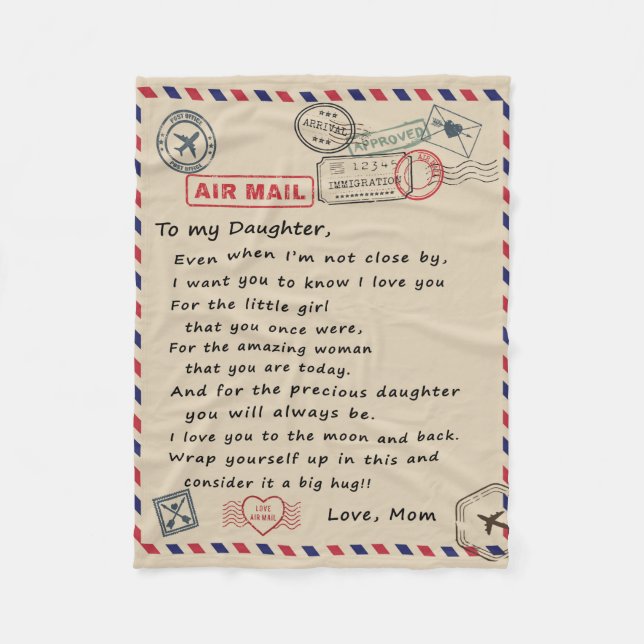 POST OFFICE
POST OFFICE
ARRIVAL
APPROVED
12345
IMMIGRATION
AIR MAIL
AIR MAIL
To my Daughter,
Even when I'm not close by,
I want you to know I love you
For the little girl
that you once were,
For the amazing woman
that you are today.
And for the precious daughter
you will always be.
I love you to the moon and back.
Wrap yourself up in this and
consider it a big hug!!
LOVE
AIR MAIL
Love, Mom